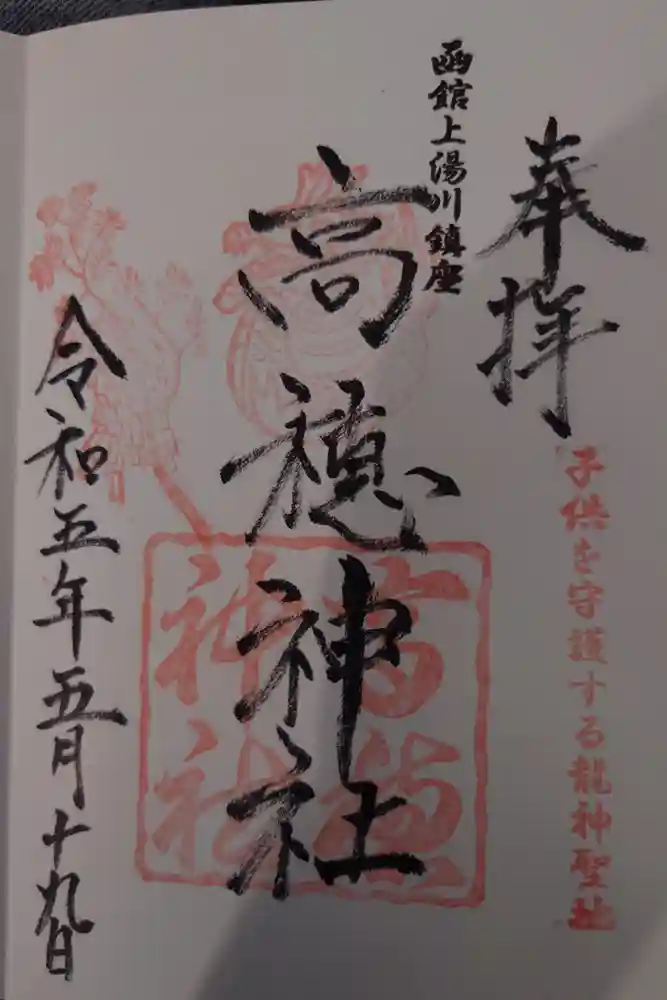 奉拝
子供を守護する龍神聖地
函館上湯川鎮座
高穂神社
高穂神社
令和五年五月十九日